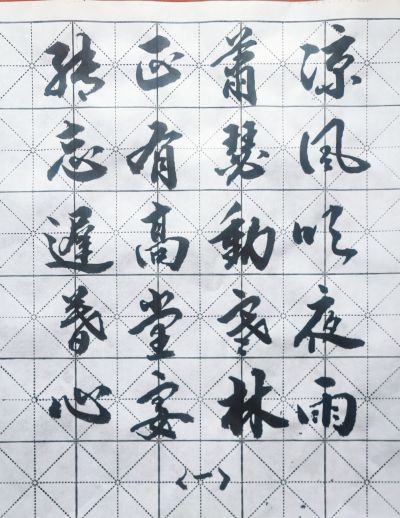 凉風吹夜雨
蕭瑟動寒林
正有高堂宴
能忘遲暮心
<一>